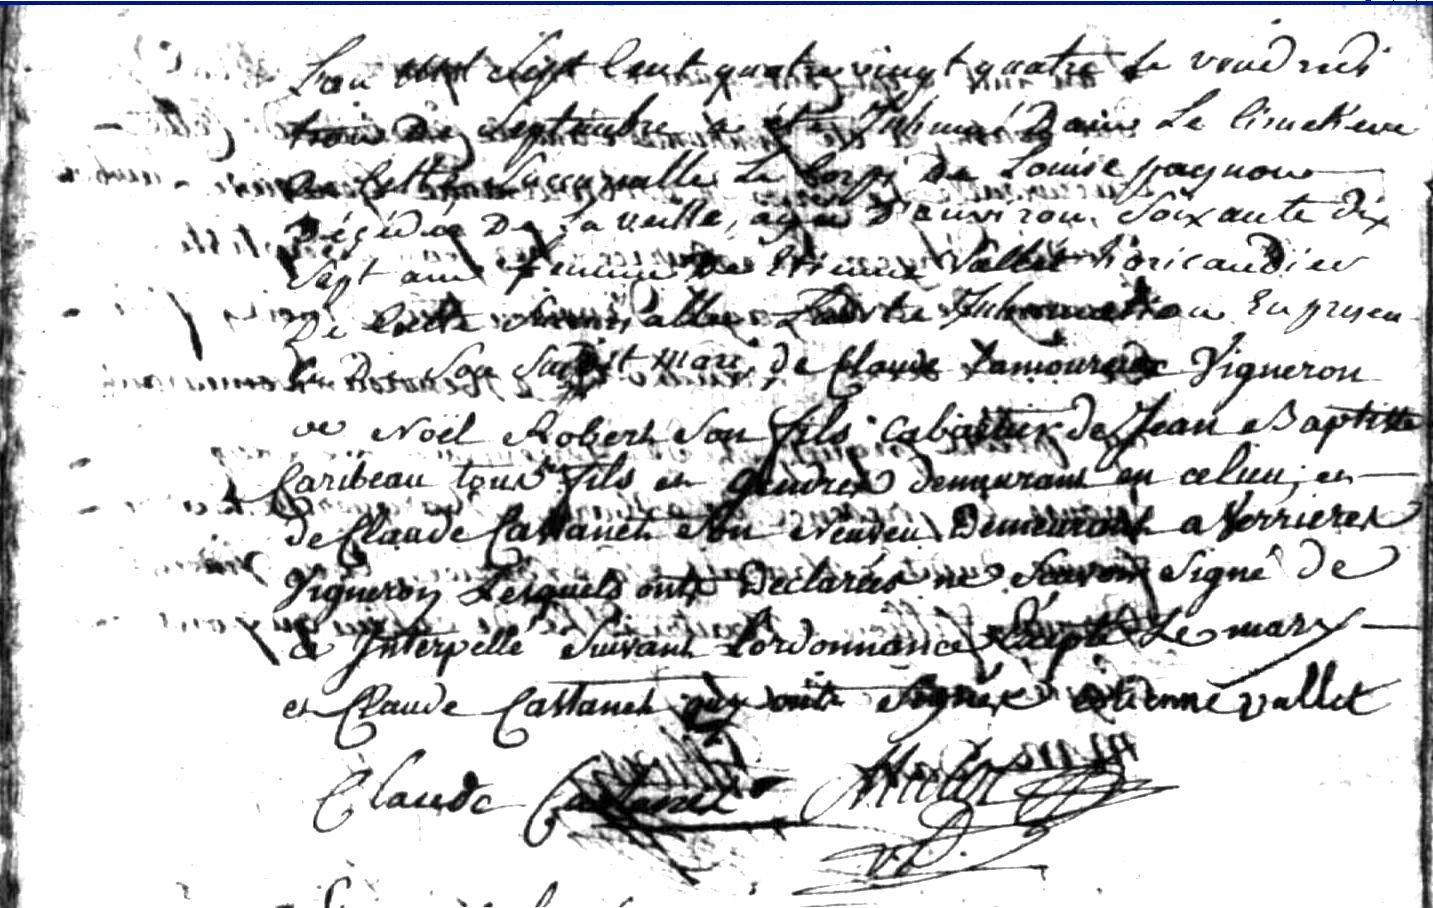 L'an mil Sept Cent quatre vingt quatre le vendredi
trois De Septembre a été Inhumé Dans Le Cimetiere
De Cette Succursalle Le Corps De Louise pagnon
Décédée De la veille, agée D'environ Soixante dix
Sept ans femme De Etienne Vallet
De Cette Succursalle Ladte Inhumation En presen
ce De Son Susdit mari, de Claude Lamoureux Vigneron
de Noël Robert Son fils de Jean Baptiste
Caribeau tous fils et gendres demeurant en ce lieu, et
de Claude Castanet Son Neveu Demeurant a Verrieres
Vigneron Lesquels ont Declarées ne Scavoir Signé de
ce Interpellé Suivant Lordonnance Excepté Le mary
et Claude Castanet quy onts Signés etienne vallet
Claude Castanet